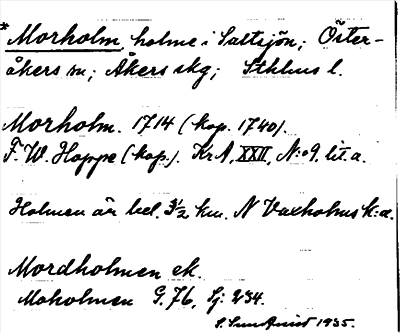 *Morholm, holme i Saltsjön; Öster-
åkers sn; Åkers skg; Sthlms l.
Morholm. 1714 (kop. 1740).
F. W. Hoppe (kop.). KrA, XXII, N:o 9. lit. a.
Holmen är bel. 3½ km. N Vaxholms k:a.
Mordholmen ek.
Moholmen G. 76, Sj: 234.
S. Sundquist 1935.